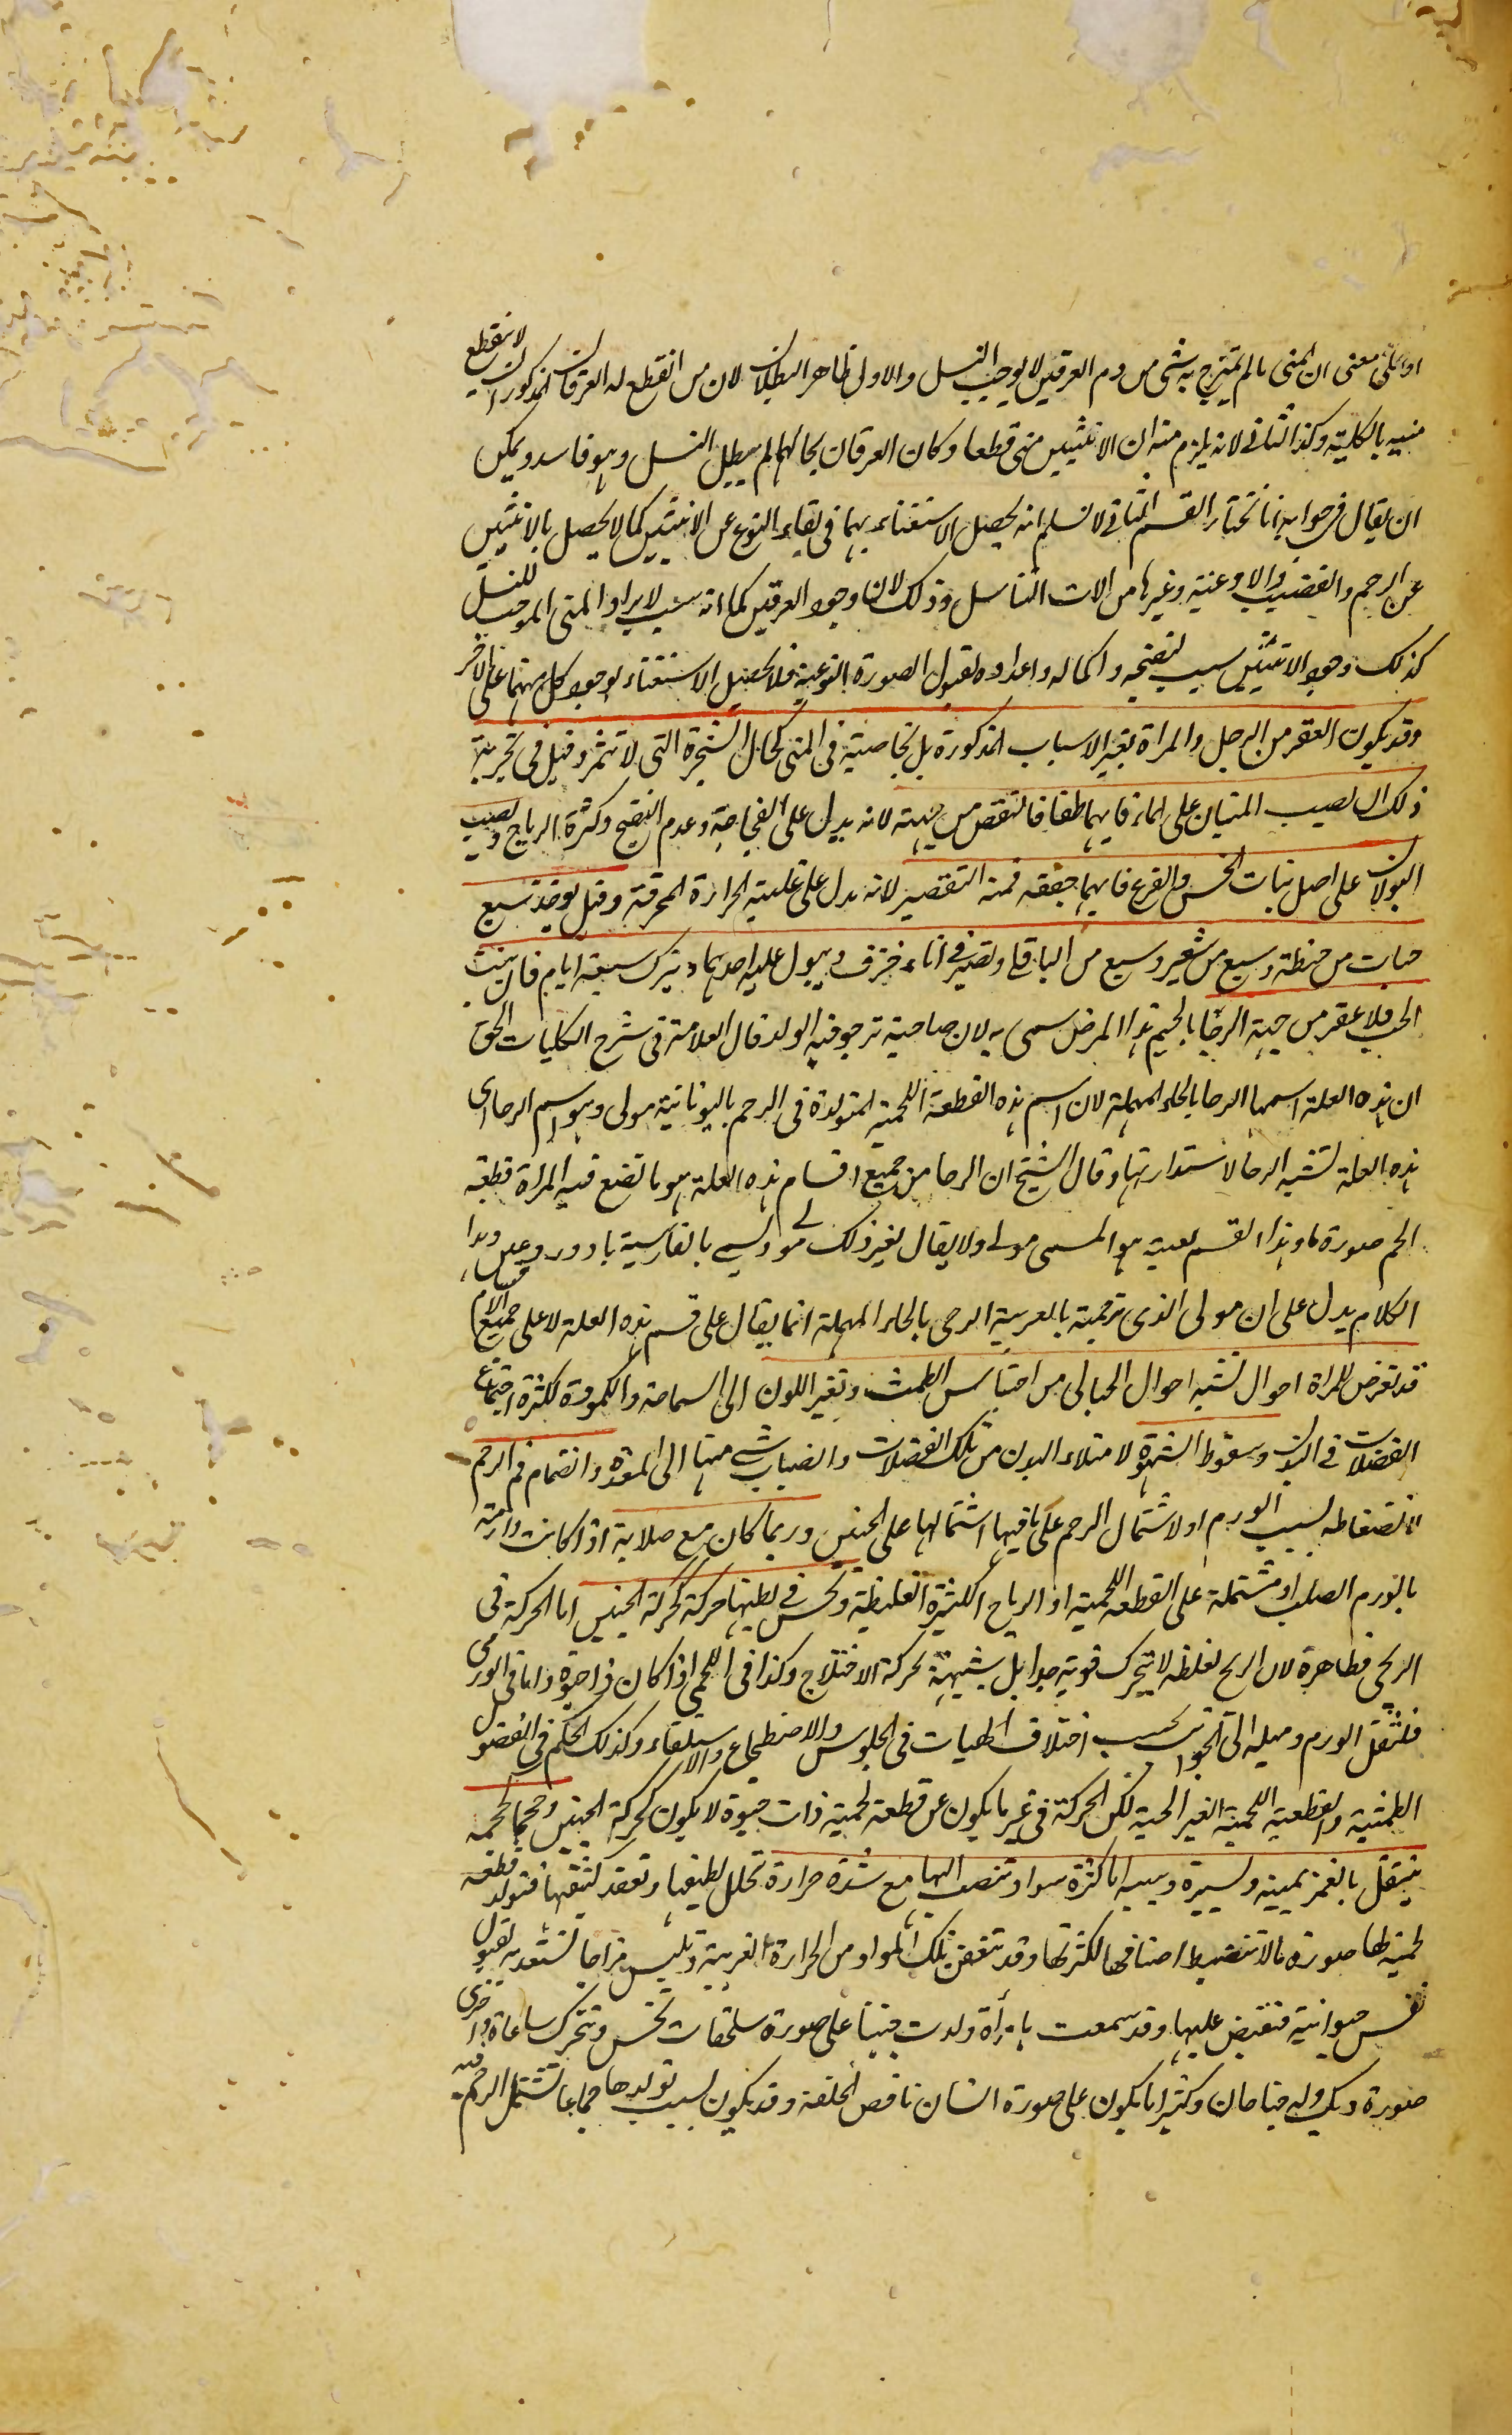 او على معنى ان المنى ما لم يمتزج به شى من دم العرقين لا يوجب النسل والاول ظاهر البطلان لان من انقطع له العرقان المذكوران لا ينقطع
منيه بالكلية وكذا الثانى لانه يلزم منه ان الانثيين متى قطعا وكان العرقان بحالهما لم يبطل النسل وهو فاسد ويمكن
ان يقال فى جوابه انا نختار القسم الثانى لا نسلم انه يحصل الاستغناء بهما فى بقاء النوع عن الانثيين كما لا يحصل بالانثيين
عن الرحم والقضيب والاوعية وغيرها من الات التناسل وذلك لان وجود العرقين كما انه سبب لايراد المنى الموجب للنسل
كذلك وجود الانثيين سبب لنضجه واكماله واعداده لقبول الصورة النوعية فلا يحصل الاستغناء بوجود كل منهما على الاخر
وقد يكون العقر من الرجل والمراة بغير الاسباب المذكورة بل بخاصية فى المنى كحال الشجرة التى لا تثمر وقيل فى تجربة
ذلك ان يصب المنيان على الماء فايهما طفا فالنقص من جهته لانه يدل على الفجاجة وعدم النضج وكثرة الرياح ويصب
البولان على اصل نبات الخس والقرع فايهما جففه فمنه التقصير لانه يدل على غلبة الحرارة المحرقة وقيل يوخذ سبع
حبات من حنطة وسبع من شعير وسبع من الباقلى وتصير فى اناء خزف ويبول عليه احدهما ويترك سبعة ايام فان نبت
الحب فلا عقر من جهته الرجا بالجيم هذا المرض سمى به لان صاحبته ترجو فيه الولد قال العلامة فى شرح الكليات الحق
ان هذه العلة اسمها الرحا بالحاء المهملة لان اسم هذه القطعة اللحمية المتولدة فى الرحم باليونانية مولى وهو اسم الرحا اى
هذه العلة تشبه الرحا لاستدارتها وقال الشيخ ان الرحا من جميع اقسام هذه العلة هو ما تضع فيه المراة قطعة
لحم صورة ما وهذا القسم بعينه هو المسمى مولى ولا يقال لغير ذلك مولى ويسمى بالفارسية باد دروغين وهذا
الكلام يدل على ان مولى الذى ترجمته بالعربية الرحى بالحاء المهملة انما يقال على قسم هذه العلة لا على جميع الاقسام
قد تعرض للمراة احوال تشبه احوال الحبالى من احتباس الطمث وتغير اللون الى السماجة والكمودة لكثرة اجتماع
الفضلات فى البدن وسقوط الشهوة لامتلاء البدن من تلك الفضلات وانصباب شى منها الى المعدة وانضمام فم الرحم
لانضغاطه بسبب الورم او لاشتمال الرحم على ما فيها اشتمالها على الجنين وربما كان مع صلابة اذا كانت وارمة
بالورم الصلب او مشتملة على القطعة اللحمية او الرياح الكثيرة الغليظة وتحس فى بطنها حركة كحركة الجنين اما الحركة فى
الريحى فظاهرة لان الريح لغلظه لا يتحرك قوية جدا بل شبيهة بحركة الاختلاج وكذا فى اللحمى اذا كان فى حيوة واما فى الورمى
فلثقل الورم وميله الى الجوانب بحسب اختلاف الهيات فى الجلوس والاضطجاع والاستلقاء وكذلك الحكم فى الفضول
الطمثية والقطعة اللحمية الغير الحية لكن الحركة فى غير ما يكون عن قطعة لحمية ذات حيوة لا يكون كحركة الجنين وحجمها كحجمه
ينتقل بالغمز يمينه ويسيرة وسببه اما كثرة مواد تنصب اليها مع شدة حرارة تحلل لطيفها وتعقد كثيفها فتولد قطعة
لحم لها صورة ما لا تنضبط اصنافها لكثرتها وقد تتعفن تلك المواد من الحرارة الغريبة وتلبس مزاجا تستعد به لقبول
نفس حيوانية فتفيض عليها وقد سمعت بامرأة ولدت جنينا على صورة سلحفات تحس وتتحرك ساعات واخرى
صورة ديك وله جناحان وكثيرا ما يكون على صورة انسان ناقص الخلقة وقد يكون بسبب تولدها جماعا تشتمل الرحم فيه